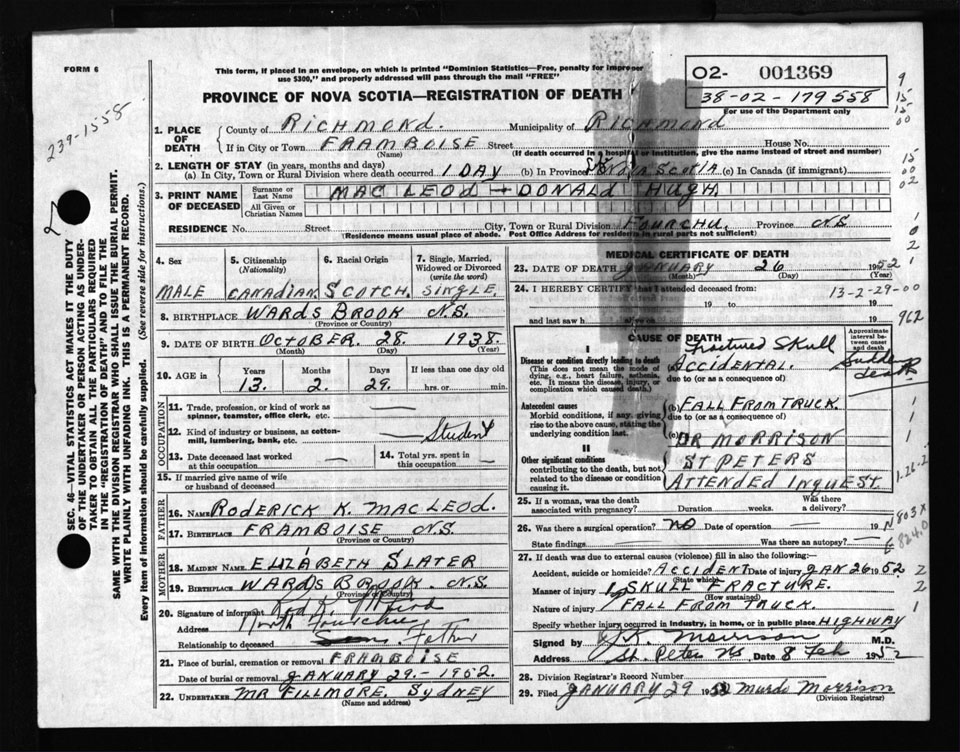 FORM 6
This form, if placed in an envelope, on which is printed "Dominion Statistics—Free, penalty for improper
use $300," and properly addressed will pass through the mail "FREE"
PROVINCE OF NOVA SCOTIA—REGISTRATION OF DEATH
02- 001369
38-02-179558
For use of the Department only
239-1558
SEC. 46—VITAL STATISTICS ACT MAKES IT THE DUTY
OF THE UNDERTAKER OR PERSON ACTING AS UNDER-
TAKER TO OBTAIN ALL THE PARTICULARS REQUIRED
IN THE "REGISTRATION OF DEATH" AND TO FILE THE
SAME WITH THE DIVISION REGISTRAR WHO SHALL ISSUE THE BURIAL PERMIT.
WRITE PLAINLY WITH UNFADING INK. THIS IS A PERMANENT RECORD.
Every item of information should be carefully supplied. (See reverse side for instructions.)
1. PLACE OF DEATH
County of RICHMOND. Municipality of RICHMOND
If in City or Town FRAMBOISE Street House No.
(Name) (If death occurred in a hospital or institution, give the name instead of street and number)
2. LENGTH OF STAY (in years, months and days)
(a) In City, Town or Rural Division where death occurred 1 DAY (b) In Province NOVA SCOTIA (c) In Canada (if immigrant)
3. PRINT NAME OF DECEASED
Surname or Last Name MAC LEOD — DONALD HUGH
All Given or Christian Names
RESIDENCE No. Street City, Town or Rural Division FOURCHU. Province N.S
(Residence means usual place of abode. Post Office Address for residents in rural parts not sufficient)
4. Sex MALE
5. Citizenship (Nationality) CANADIAN.
6. Racial Origin SCOTCH.
7. Single, Married, Widowed or Divorced (write the word) SINGLE.
8. BIRTHPLACE WARDS BROOK N.S.
(Province or Country)
9. DATE OF BIRTH OCTOBER. 28. 1938
(Month) (Day) (Year)
10. AGE in Years Months Days If less than one day old
13. 2. 29. hrs. or min.
OCCUPATION
11. Trade, profession, or kind of work as spinner, teamster, office clerk, etc. —
12. Kind of industry or business, as cotton-mill, lumbering, bank, etc. — Student
13. Date deceased last worked at this occupation —
14. Total yrs. spent in this occupation —
15. If married give name of wife or husband of deceased
FATHER
16. NAME RODERICK K. MAC LEOD.
17. BIRTHPLACE FRAMBOISE N.S.
(Province or Country)
MOTHER
18. MAIDEN NAME ELIZABETH SLATER
19. BIRTHPLACE WARDS BROOK. N.S.
(Province or Country)
20. Signature of informant
Address North Fourchu
Relationship to deceased Father
21. Place of burial, cremation or removal FRAMBOISE
Date of burial or removal JANUARY 29.- 1952.
22. UNDERTAKER MR FILLMORE, SYDNEY
(Name and address)
MEDICAL CERTIFICATE OF DEATH
23. DATE OF DEATH JANUARY 26 1952
(Month) (Day) (Year)
24. I HEREBY CERTIFY that I attended deceased from:
13-2-29-00
19 to 19
and last saw h alive on 19
962
CAUSE OF DEATH
Approximate interval between onset and death
I
Disease or condition directly leading to death
(This does not mean the mode of dying, e.g., heart failure, asthenia, etc. It means the disease, injury, or complication which caused death.)
Fractured Skull
ACCIDENTAL. Sudden death
due to (or as a consequence of)
Antecedent causes
Morbid conditions, if any, giving rise to the above cause, stating the underlying condition last.
(b) FALL FROM TRUCK.
due to (or as a consequence of)
(c) DR MORRISON
II
Other significant conditions
contributing to the death, but not related to the disease or condition causing it.
ST PETERS
ATTENDED INQUEST.
25. If a woman, was the death associated with pregnancy? Duration weeks. Was there a delivery?
26. Was there a surgical operation? NO Date of operation 19
State findings Was there an autopsy?
27. If death was due to external causes (violence) fill in also the following:—
Accident, suicide or homicide? ACCIDENT Date of injury JAN 26 1952
(State which)
Manner of injury SKULL FRACTURE.
(How sustained)
Nature of injury FALL FROM TRUCK.
Specify whether injury occurred in industry, in home, or in public place HIGHWAY
Signed by J.K. Morrison M.D.
Address St. Peters NS, Date 8 Feb 1952
28. Division Registrar's Record Number
29. Filed JANUARY 29 1952 Murdo Morrison
(Division Registrar)